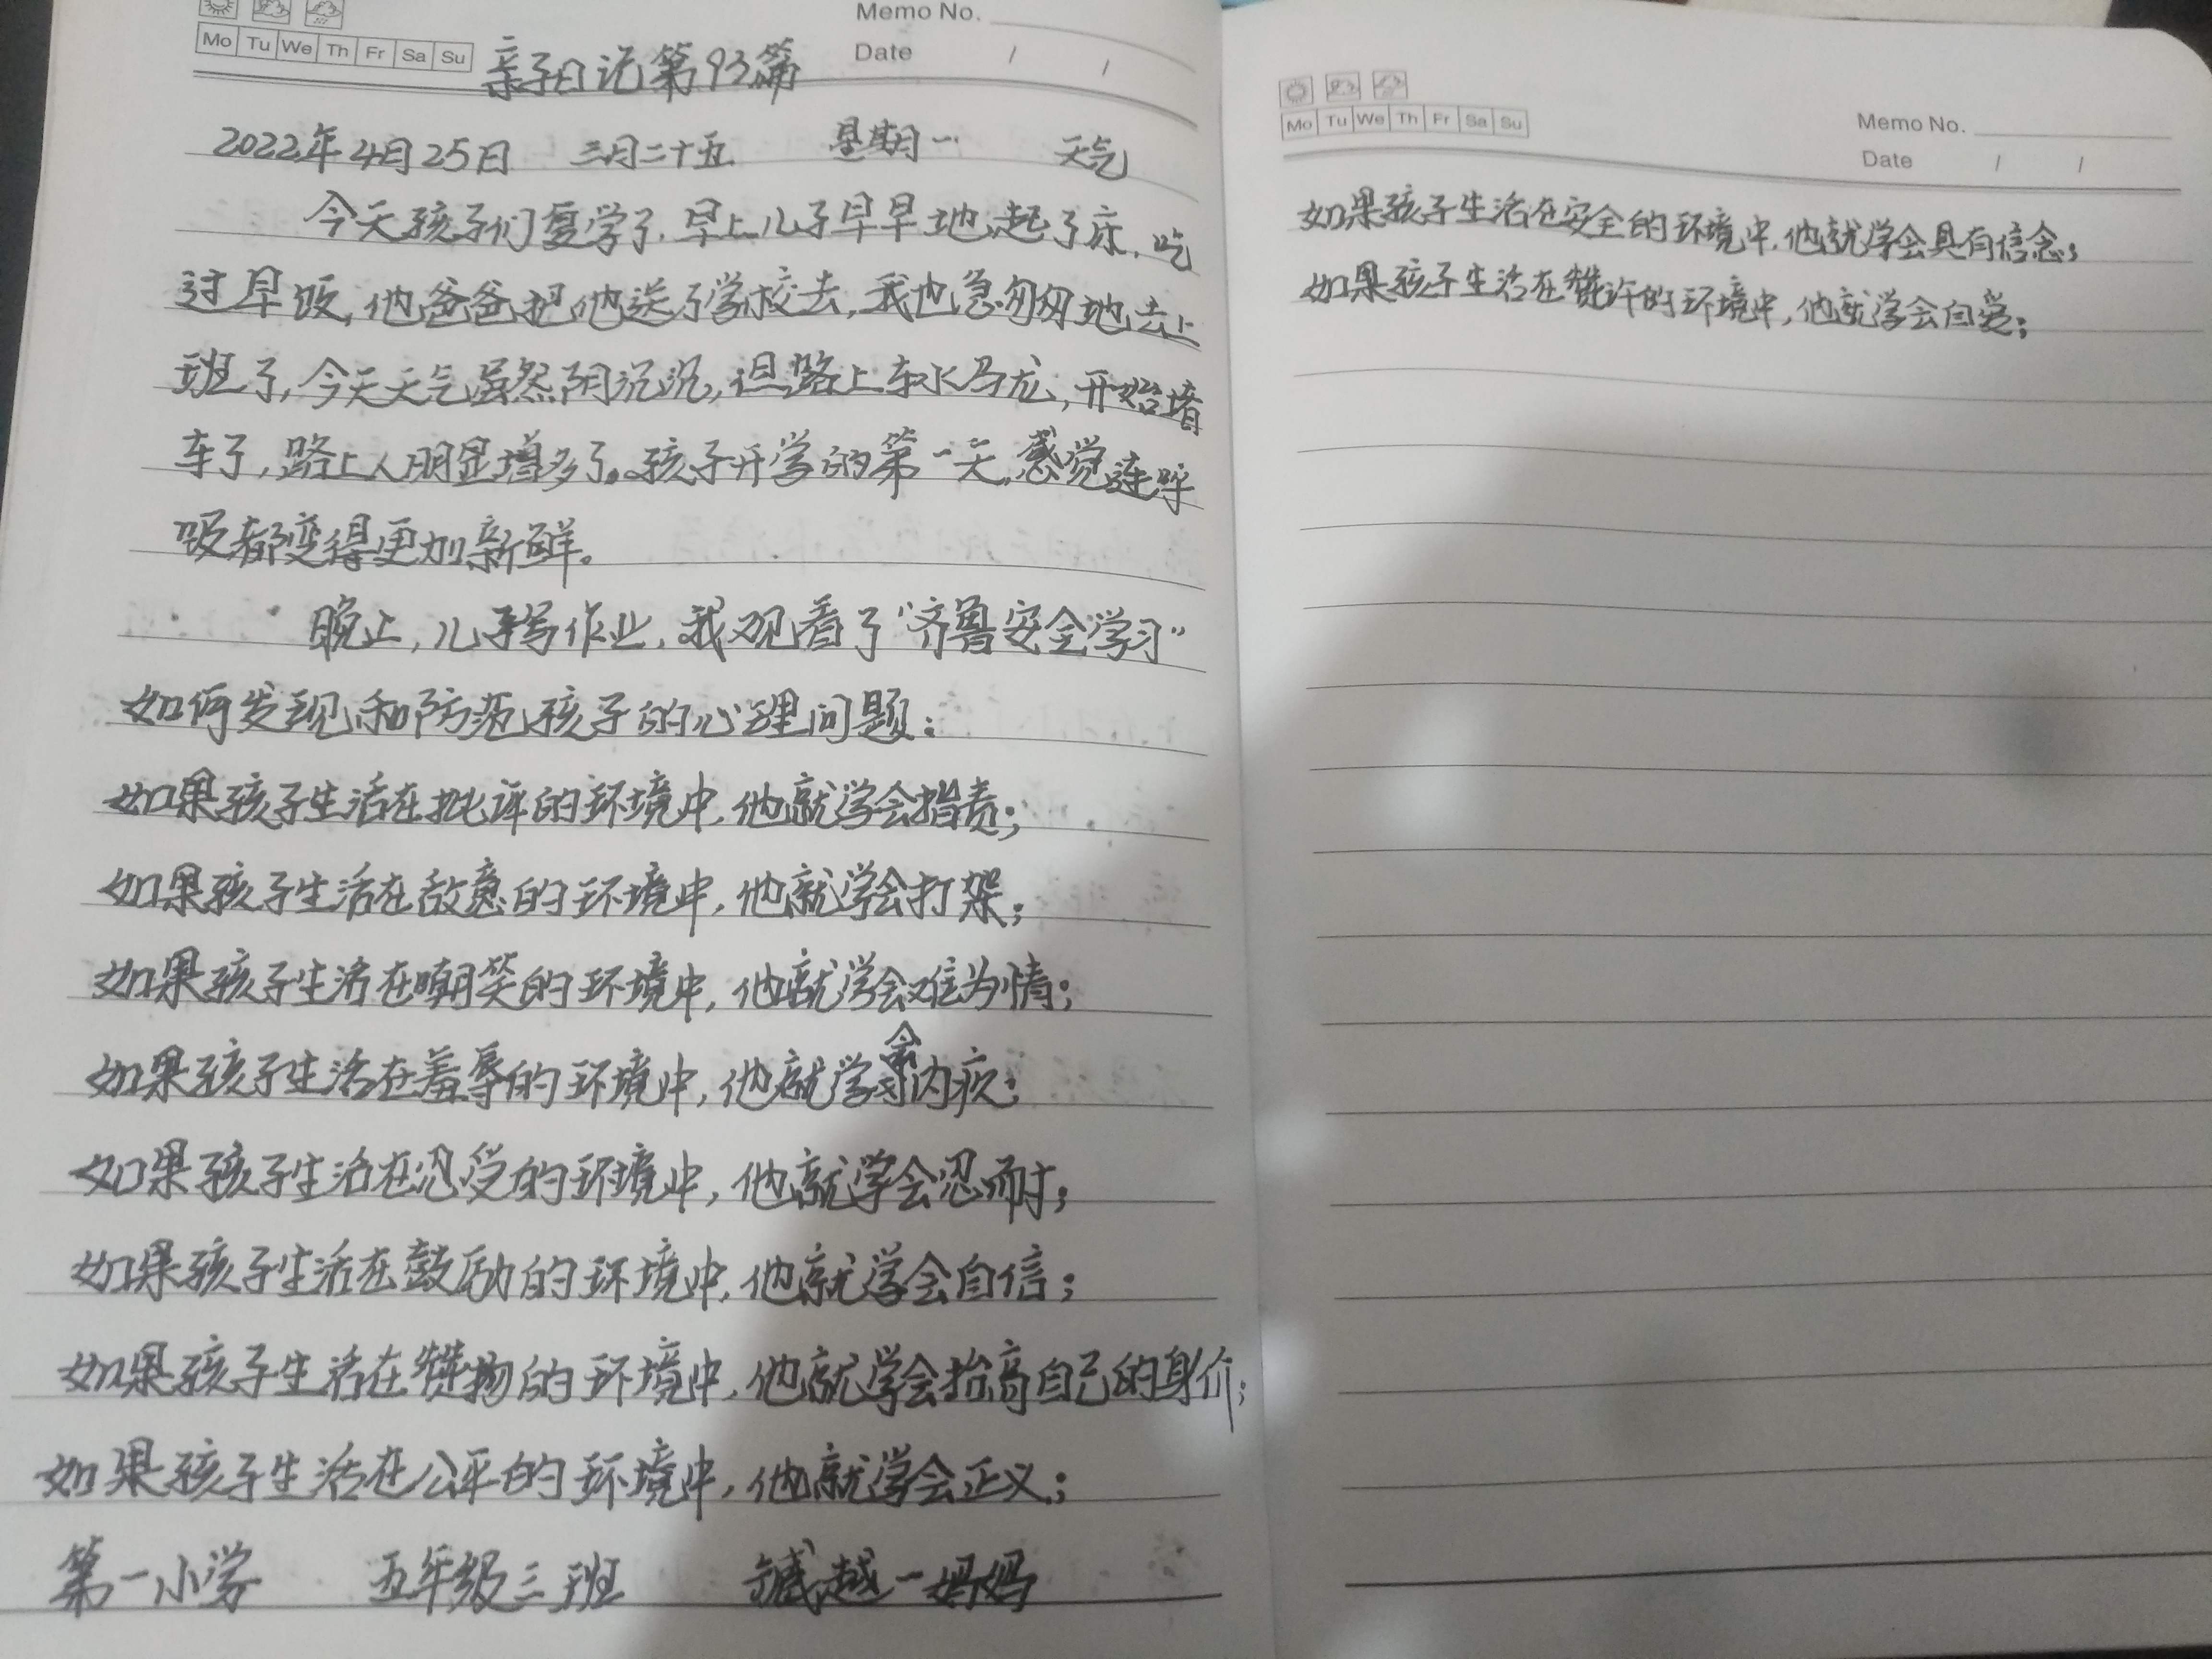 Mo Tu We Th Fr Sa Su
Memo No.
Date / /
亲子日记第93篇
2022年4月25日 三月二十五 星期一 天气
今天孩子们复学了,早上儿子早早地起了床,吃
过早饭,他爸爸把他送了学校去,我也急匆匆地去上
班了,今天天气虽然阴沉沉,但路上车水马龙,开始堵
车了,路上人明显增多了。孩子开学的第一天,感觉连呼
吸都变得更加新鲜。
晚上,儿子写作业,我观看了“齐鲁安全学习”
如何发现和防范孩子的心理问题:
如果孩子生活在批评的环境中,他就学会指责;
如果孩子生活在敌意的环境中,他就学会打架;
如果孩子生活在嘲笑的环境中,他就学会难为情;
如果孩子生活在羞辱的环境中,他就学会内疚;
如果孩子生活在忍受的环境中,他就学会忍耐;
如果孩子生活在鼓励的环境中,他就学会自信;
如果孩子生活在赞扬的环境中,他就学会抬高自己的身价;
如果孩子生活在公平的环境中,他就学会正义;
第一小学 五年级三班 越一妈妈
Mo Tu We Th Fr Sa Su
Memo No.
Date / /
如果孩子生活在安全的环境中,他就学会具有信念;
如果孩子生活在赞许的环境中,他就学会自爱;